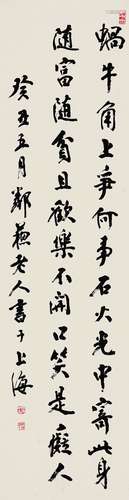 蝸牛角上爭何事石火光中寄此身
隨富隨貧且歡樂不開口笑是癡人
癸丑五月鄰蘇老人書于上海